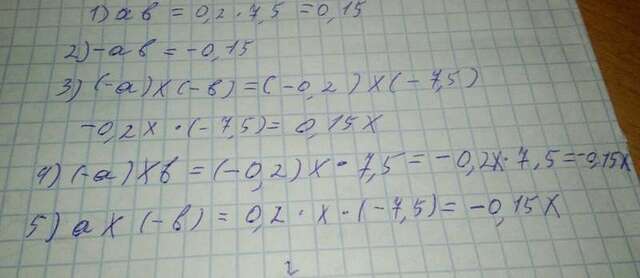 1) ab = 0,2 · 7,5 = 0,15
2) -ab = -0,15
3) (-a) x (-b) = (-0,2) x (-7,5)
-0,2x · (-7,5) = 0,15x
4) (-a) x b = (-0,2) x · 7,5 = -0,2x · 7,5 = -0,15x
5) a x (-b) = 0,2 · x · (-7,5) = -0,15x